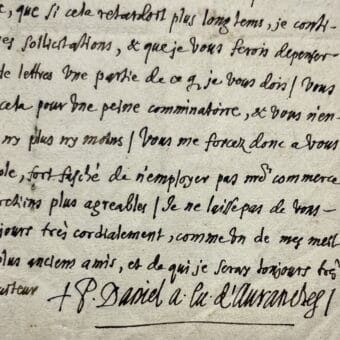 , que si cela retardoit plus long tems, je conti-
es sollicitations, & que je vous ferois depenser
de lettres Une partie de ce q. je vous dois / Vous
cela pour Une peine comminatoire, & Vous n'en-
ny plus ny moins / Vous me forcez donc a vous
ole, fort fasché de n'employer pas nr̃e commerce
plus agreables / Je ne laisse pas de vous
jours très cordialement, comme Un de mes meil
plus anciens amis, et de qui je seray toujours très
viteur + P. Daniel a. Eu. d'Avranches /